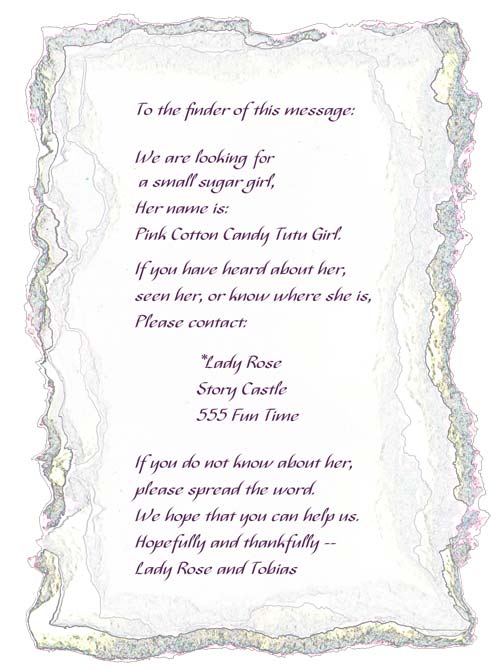 To the finder of this message:
We are looking for
a small sugar girl,
Her name is:
Pink Cotton Candy Tutu Girl.
If you have heard about her,
seen her, or know where she is,
Please contact:
*Lady Rose
Story Castle
555 Fun Time
If you do not know about her,
please spread the word.
We hope that you can help us.
Hopefully and thankfully --
Lady Rose and Tobias